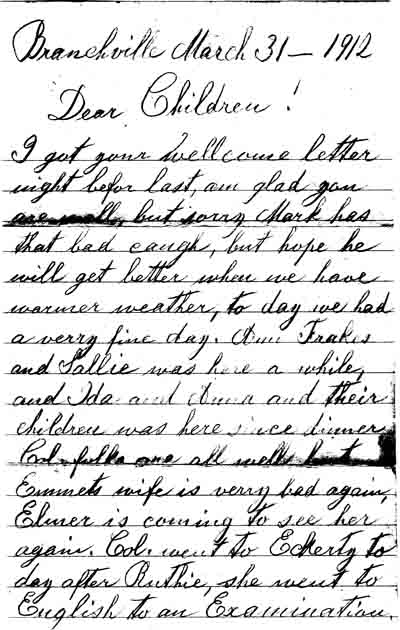 Branchville March 31 – 1912
Dear Children!
I got your wellcome letter
night befor last, am glad you
are well, but sorry Mark has
that bad caugh, but hope he
will get better when we have
warmer weather, to day we had
a verry fine day. Ann Frakes
and Sallie was here a while,
and Ida and Anna and their
children was here since dinner
Col. folks are all well but
Emmets wife is verry bad again,
Elmer is coming to see her
again. Col. went to Eckerty to
day after Ruthie, she went to
English to an Examination.